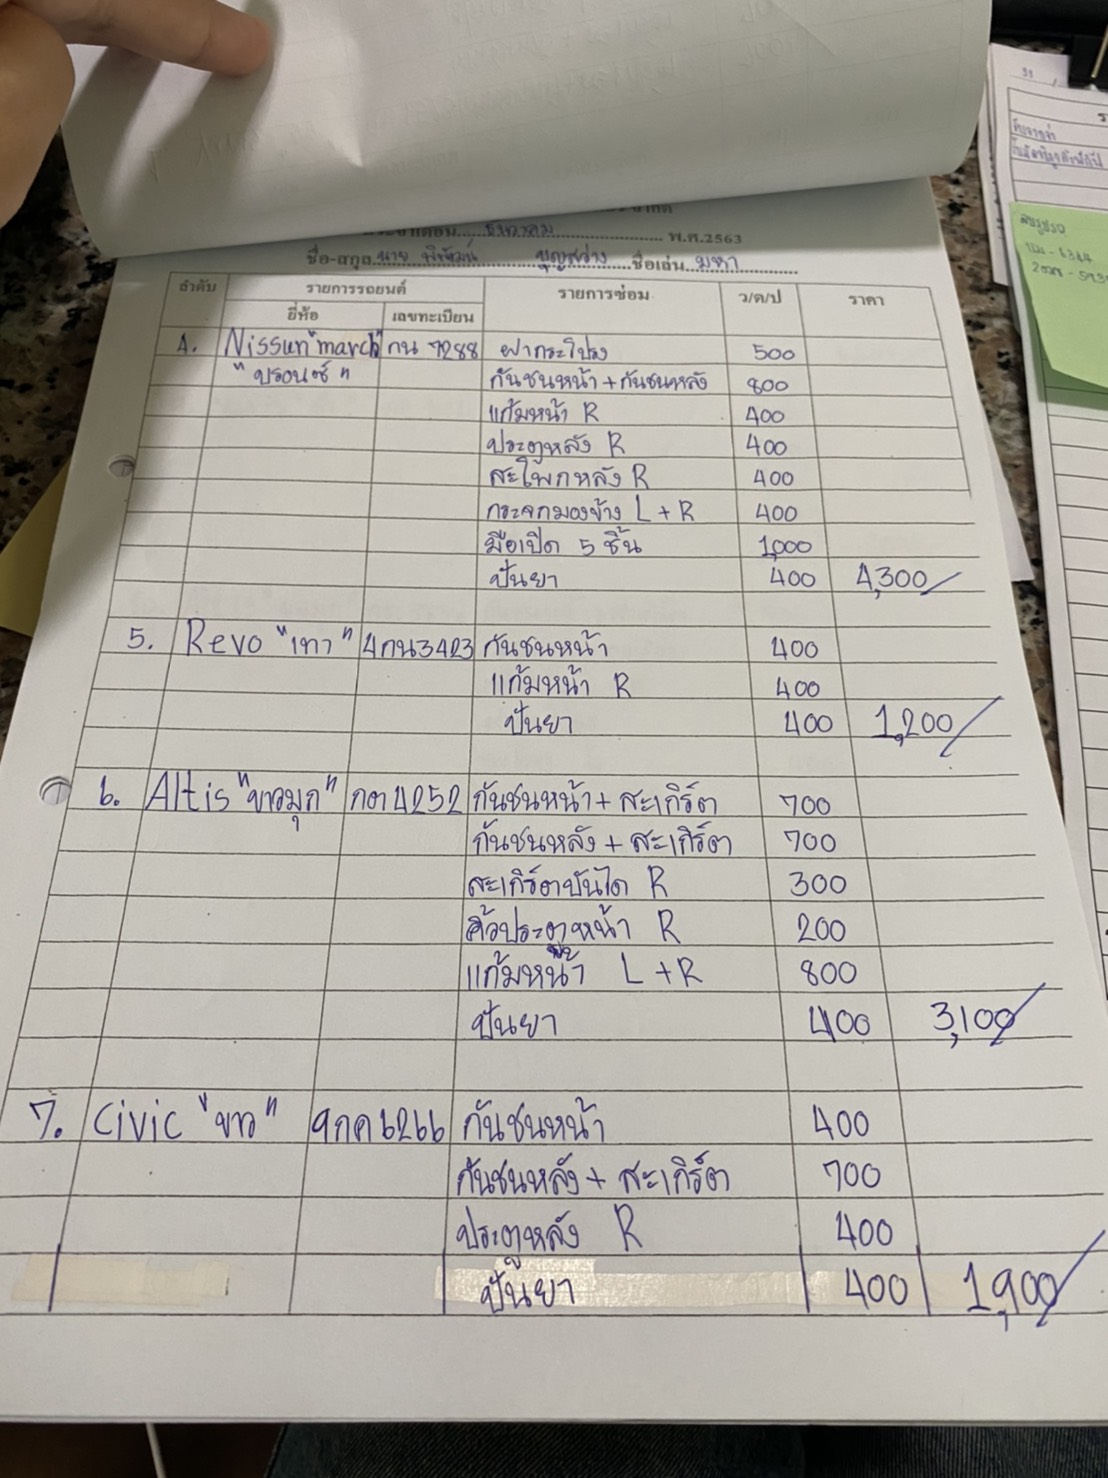 ธันวาคม พ.ศ.2563
ชื่อ-สกุล นาย พิพัฒน์ บุญสว่าง ชื่อเล่น มหา
ลำดับ รายการรถยนต์ รายการซ่อม ว/ด/ป ราคา
ยี่ห้อ เลขทะเบียน
4. Nissun "march" กน 7288 ฝากระโปรง 500
"บรอนซ์" กันชนหน้า + กันชนหลัง 800
แก้มหน้า R 400
ประตูหลัง R 400
สะโพกหลัง R 400
กระจกมองข้าง L + R 400
มือเปิด 5 ชิ้น 1,000
ปั่นยา 400 4,300/
5. Revo "เทา" 4กน3423 กันชนหน้า 400
แก้มหน้า R 400
ปั่นยา 400 1,200/
6. Altis "ขาวมุก" กต4252 กันชนหน้า + สะเกิร์ต 700
กันชนหลัง + สะเกิร์ต 700
สะเกิร์ตบันได R 300
คิ้วประตูหน้า R 200
แก้มหน้า L + R 800
ปั่นยา 400 3,100/
7. Civic "ขาว" 9กค6266 กันชนหน้า 400
กันชนหลัง + สะเกิร์ต 700
ประตูหลัง R 400
ปั่นยา 400 1,900/